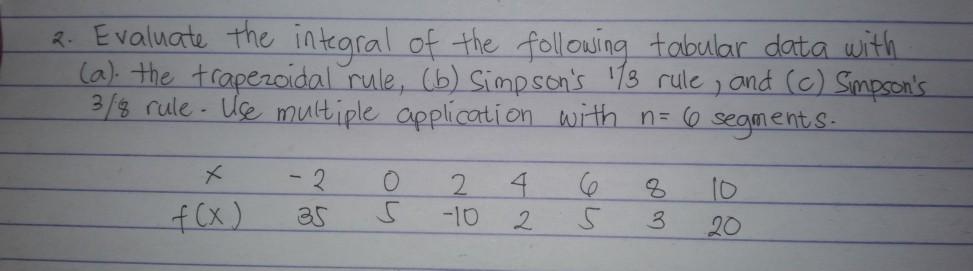 2. Evaluate the integral of the following tabular data with
(a). the trapezoidal rule, (b) Simpson's 1/3 rule, and (c) Simpson's
3/8 rule. Use multiple application with n= 6 segments.
x -2 0 2 4 6 8 10
f(x) 35 5 -10 2 5 3 20